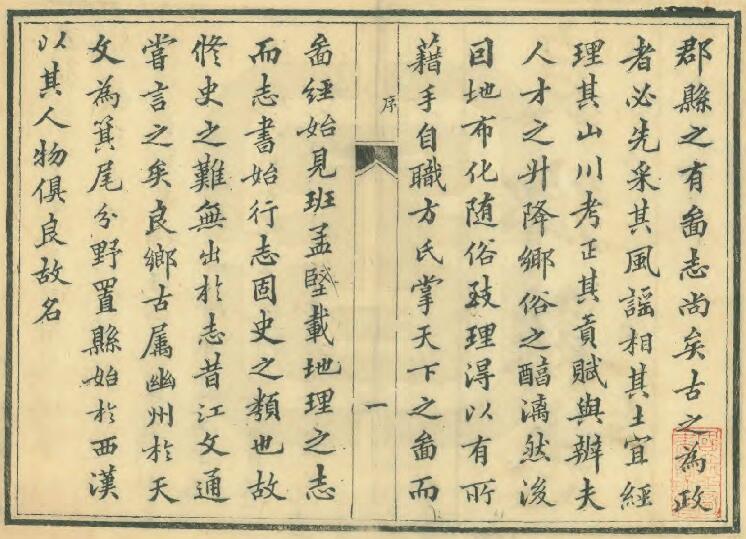 郡縣之有啚志尚矣古之為政
者必先采其風謡相其土宜經
理其山川考正其貢賦與辦夫
人才之升降鄉俗之醕漓然後
因地布化随俗致理得以有所
藉手自職方氏掌天下之啚而
序
一
啚經始見班孟堅載地理之志
而志書始行志固史之類也故
修史之難無出於志昔江文通
嘗言之矣良鄉古属幽州於天
文為箕尾分野置縣始於西漢
以其人物俱良故名